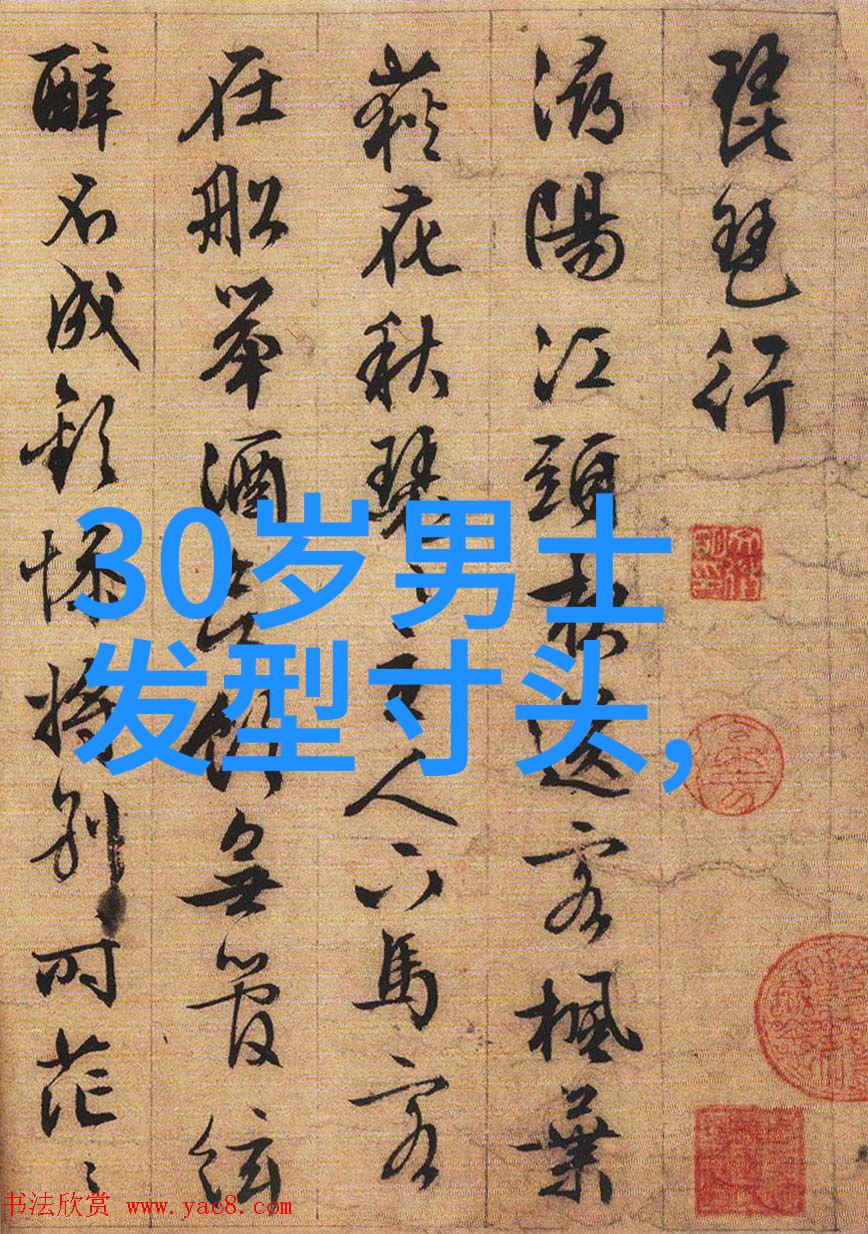 琵琶行
潯陽江頭夜送客楓葉
荻花秋瑟〻主人下馬客
在船舉酒欲飲無管絃
醉不成歡慘將別時茫〻
30岁男士
发型寸头,
书法欣赏 www.yac8.com